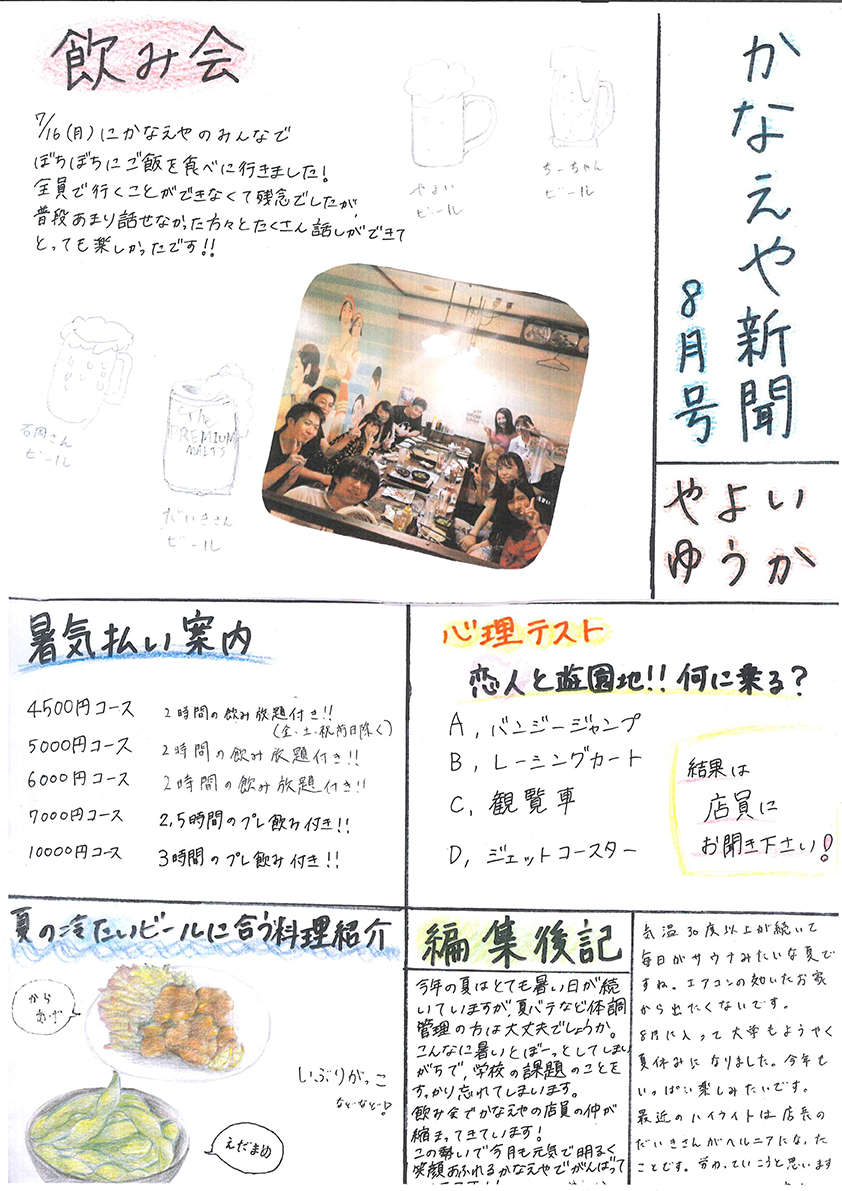 かなえや新聞
8月号
やよい
ゆうか
飲み会
7/16(月)にかなえやのみんなで
ぼちぼちにご飯を食べに行きました!
全員で行くことができなくて残念でしたが、
普段あまり話せなかった方々とたくさん話しができて
とっても楽しかったです!!
やよい
ビール
ちーちゃん
ビール
石岡さん
ビール
The
PREMIUM
MALTS
だいきさん
ビール
暑気払い案内
4500円コース 2時間の飲み放題付き!!
(金、土、祝前日除く)
5000円コース 2時間の飲み放題付き!!
6000円コース 2時間の飲み放題付き!!
7000円コース 2.5時間のプレ飲み付き!!
10000円コース 3時間のプレ飲み付き!!
心理テスト
恋人と遊園地!!何に乗る?
A, バンジージャンプ
B, レーシングカート
C, 観覧車
D, ジェットコースター
結果は
店員に
お聞き下さい!
夏の冷たいビールに合う料理紹介
から
あげ
いぶりがっこ
などなど!
えだまめ
編集後記
今年の夏はとても暑い日が続
いていますが、夏バテなど体調
管理の方は大丈夫でしょうか。
こんなに暑いとぼーっとしてしまい
がちで、学校の課題のことを
すっかり忘れてしまいます。
飲み会でかなえやの店員の仲が
縮まってきています!
この勢いで今月も元気で明るく
笑顔あふれるかなえやでがんばって
気温30度以上が続いて
毎日がサウナみたいな夏で
すね。エアコンの効いたお家
から出たくないです。
8月に入って大学もようやく
夏休みになりました。今年も
いっぱい楽しみたいです。
最近のハイライトは店長の
だいきさんがヘルニアになった
ことです。労わっていこうと思います